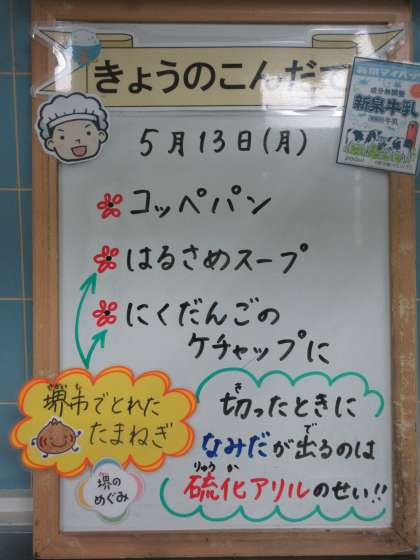 きょうのこんだて
成分無調整
新泉牛乳
200ml
5月13日(月)
コッペパン
はるさめスープ
にくだんごの
ケチャップに
堺市でとれた
たまねぎ
堺の
めぐみ
切ったときに
なみだが出るのは
硫化アリルのせい!!